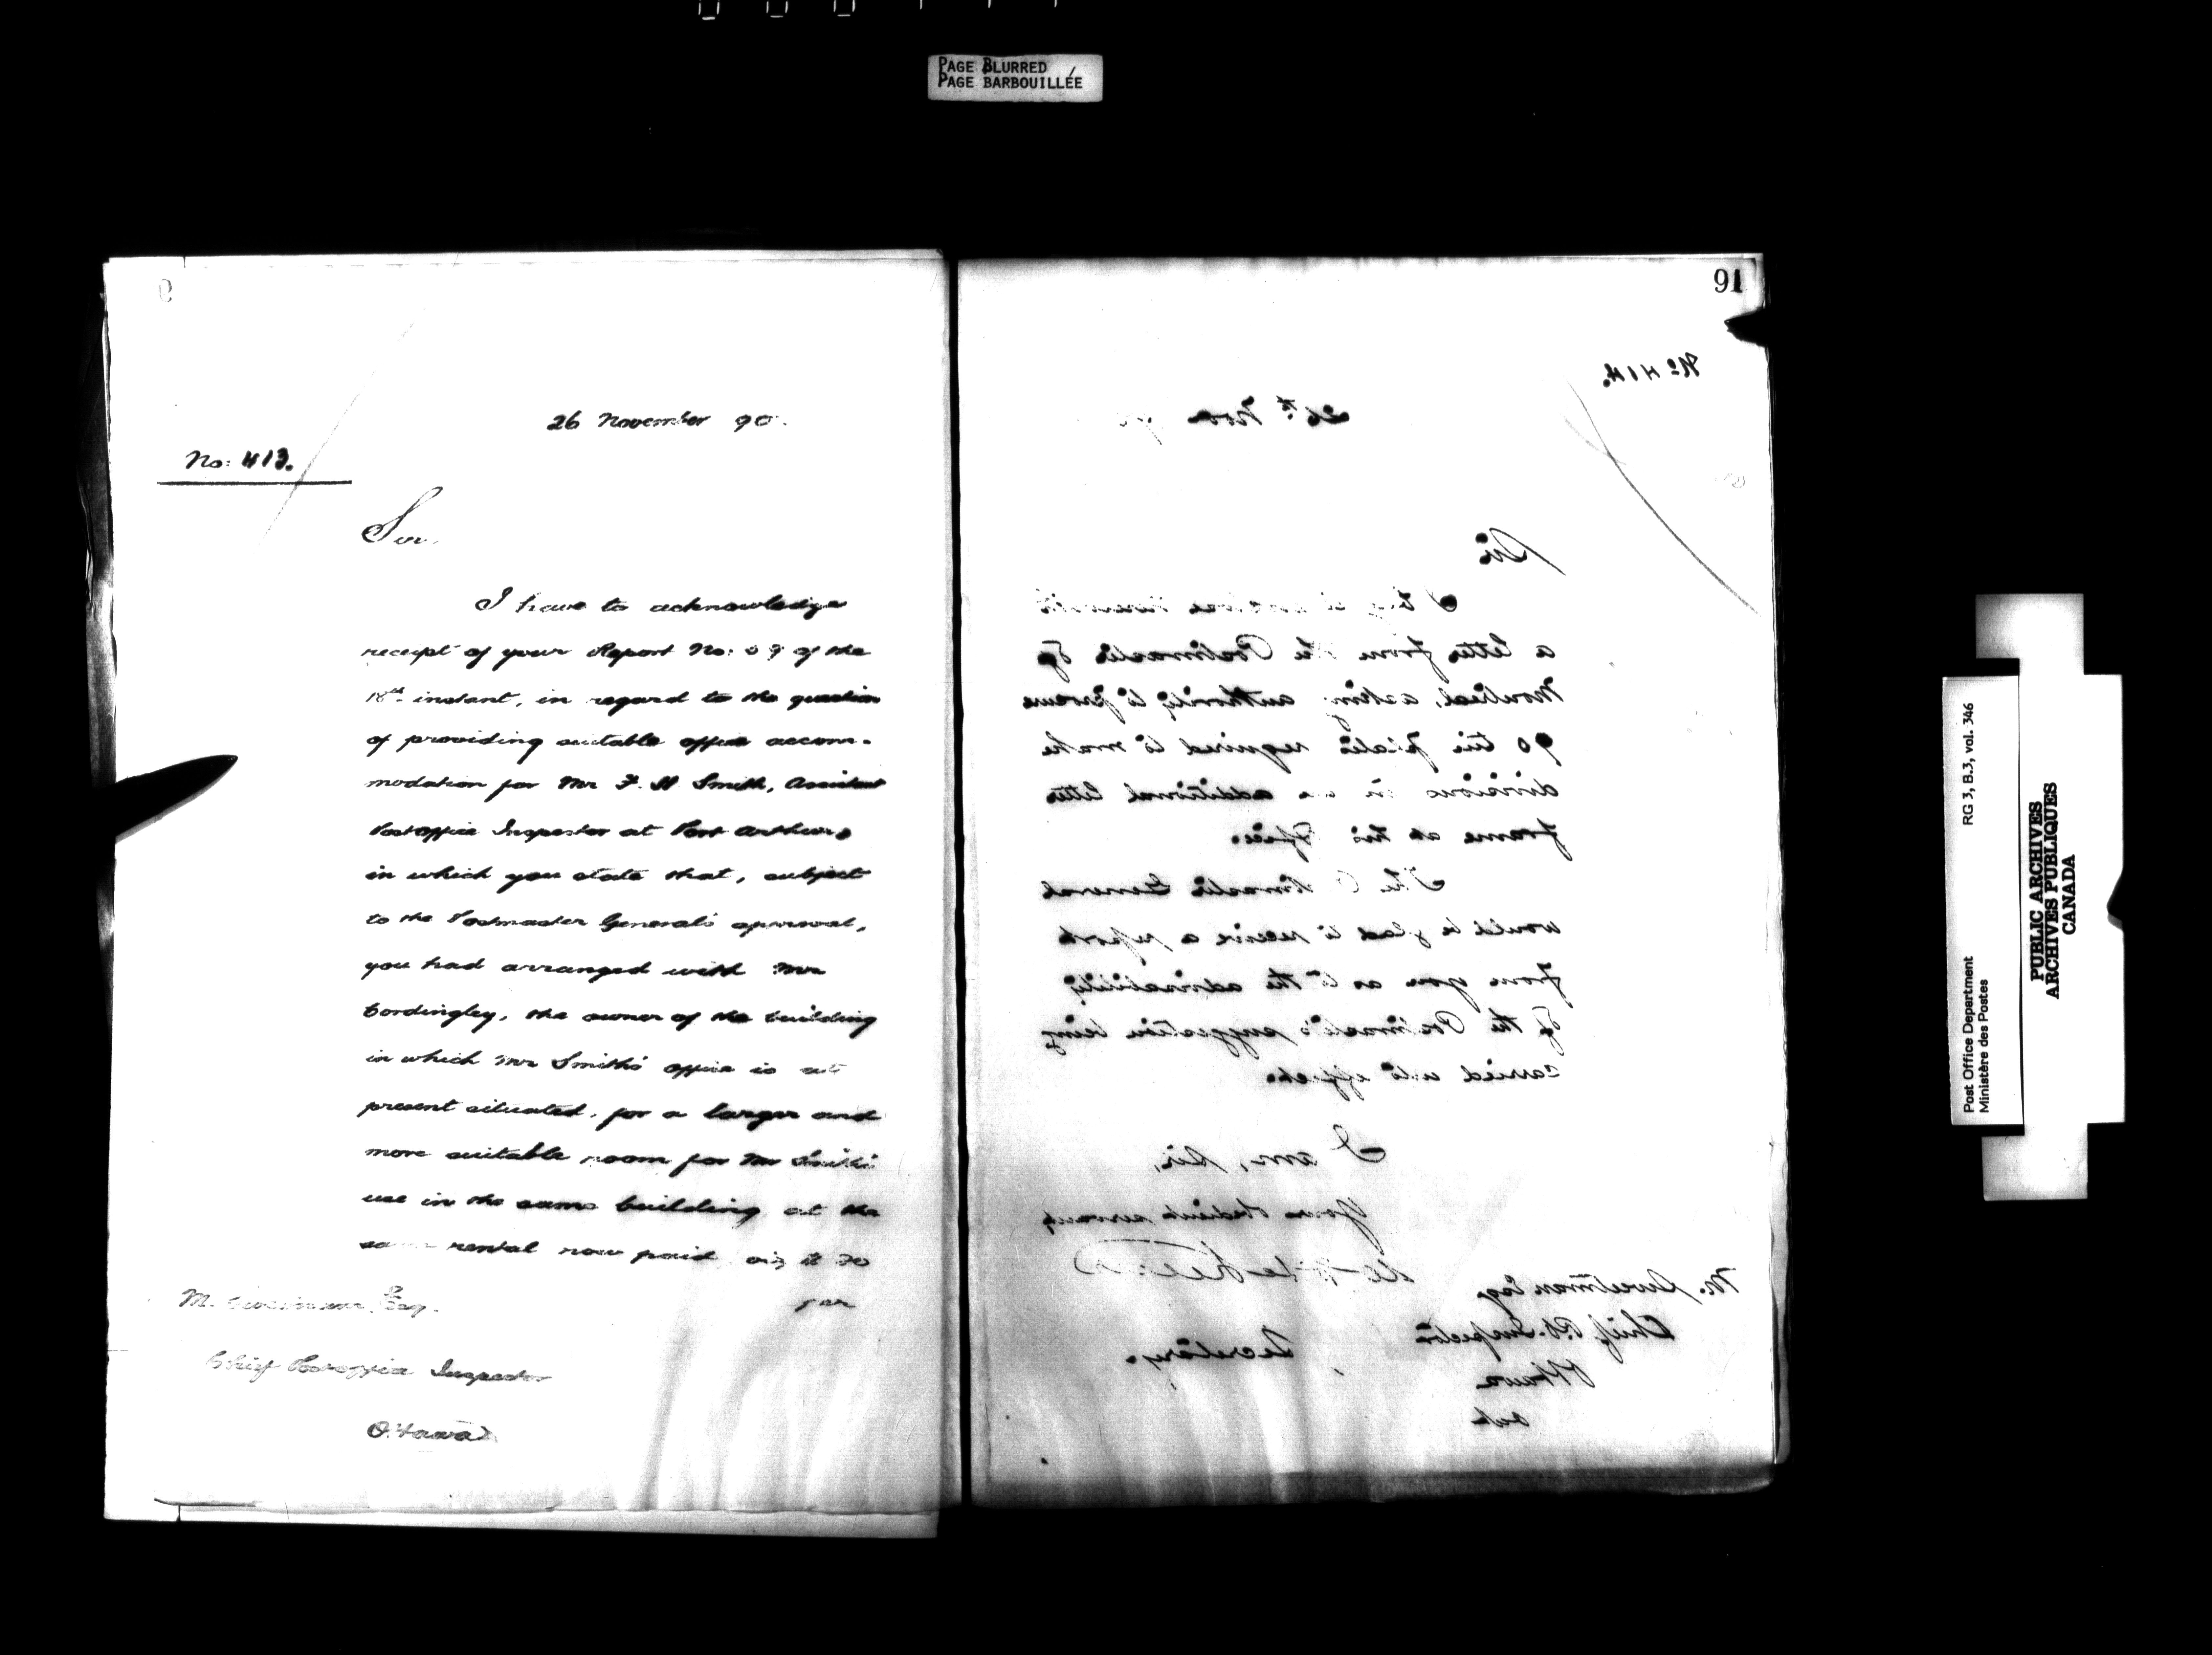 PAGE BLURRED
PAGE BARBOUILLÉE
26 November 90.
No: 413.
Sir.
I have to acknowledge
receipt of your Report No: of the
18th instant, in regard to the question
of providing suitable office accom-
modation for Mr F. H Smith, Assistant
Postoffice Inspector at Port Arthur,
in which you state that, subject
to the Postmaster General's approval,
you had arranged with Mr
Cordingley, the owner of the building
in which Mr Smith's office is at
present situated, for a larger and
more suitable room for Mr Smith's
use in the same building at the
same rental now paid viz
per
M. Sweetnam, Esq.
Chief Postoffice Inspector
Ottawa
91
No 414.
26th Nov 90
Sir
I beg to enclose herewith
a letter from the Postmaster of
Montreal, asking authority to procure
90 tin plates required to make
divisions in an additional letter
frame at his Office.
The Postmaster General
would be glad to receive a report
from you as to the advisability
of the Postmaster's suggestion being
carried into effect.
I am, Sir,
Your obedient servant
Secretary.
M. Sweetnam Esq
Chief P.O. Inspector
Ottawa
Post Office Department
Ministère des Postes
RG 3, B.3, vol. 346
PUBLIC ARCHIVES
ARCHIVES PUBLIQUES
CANADA